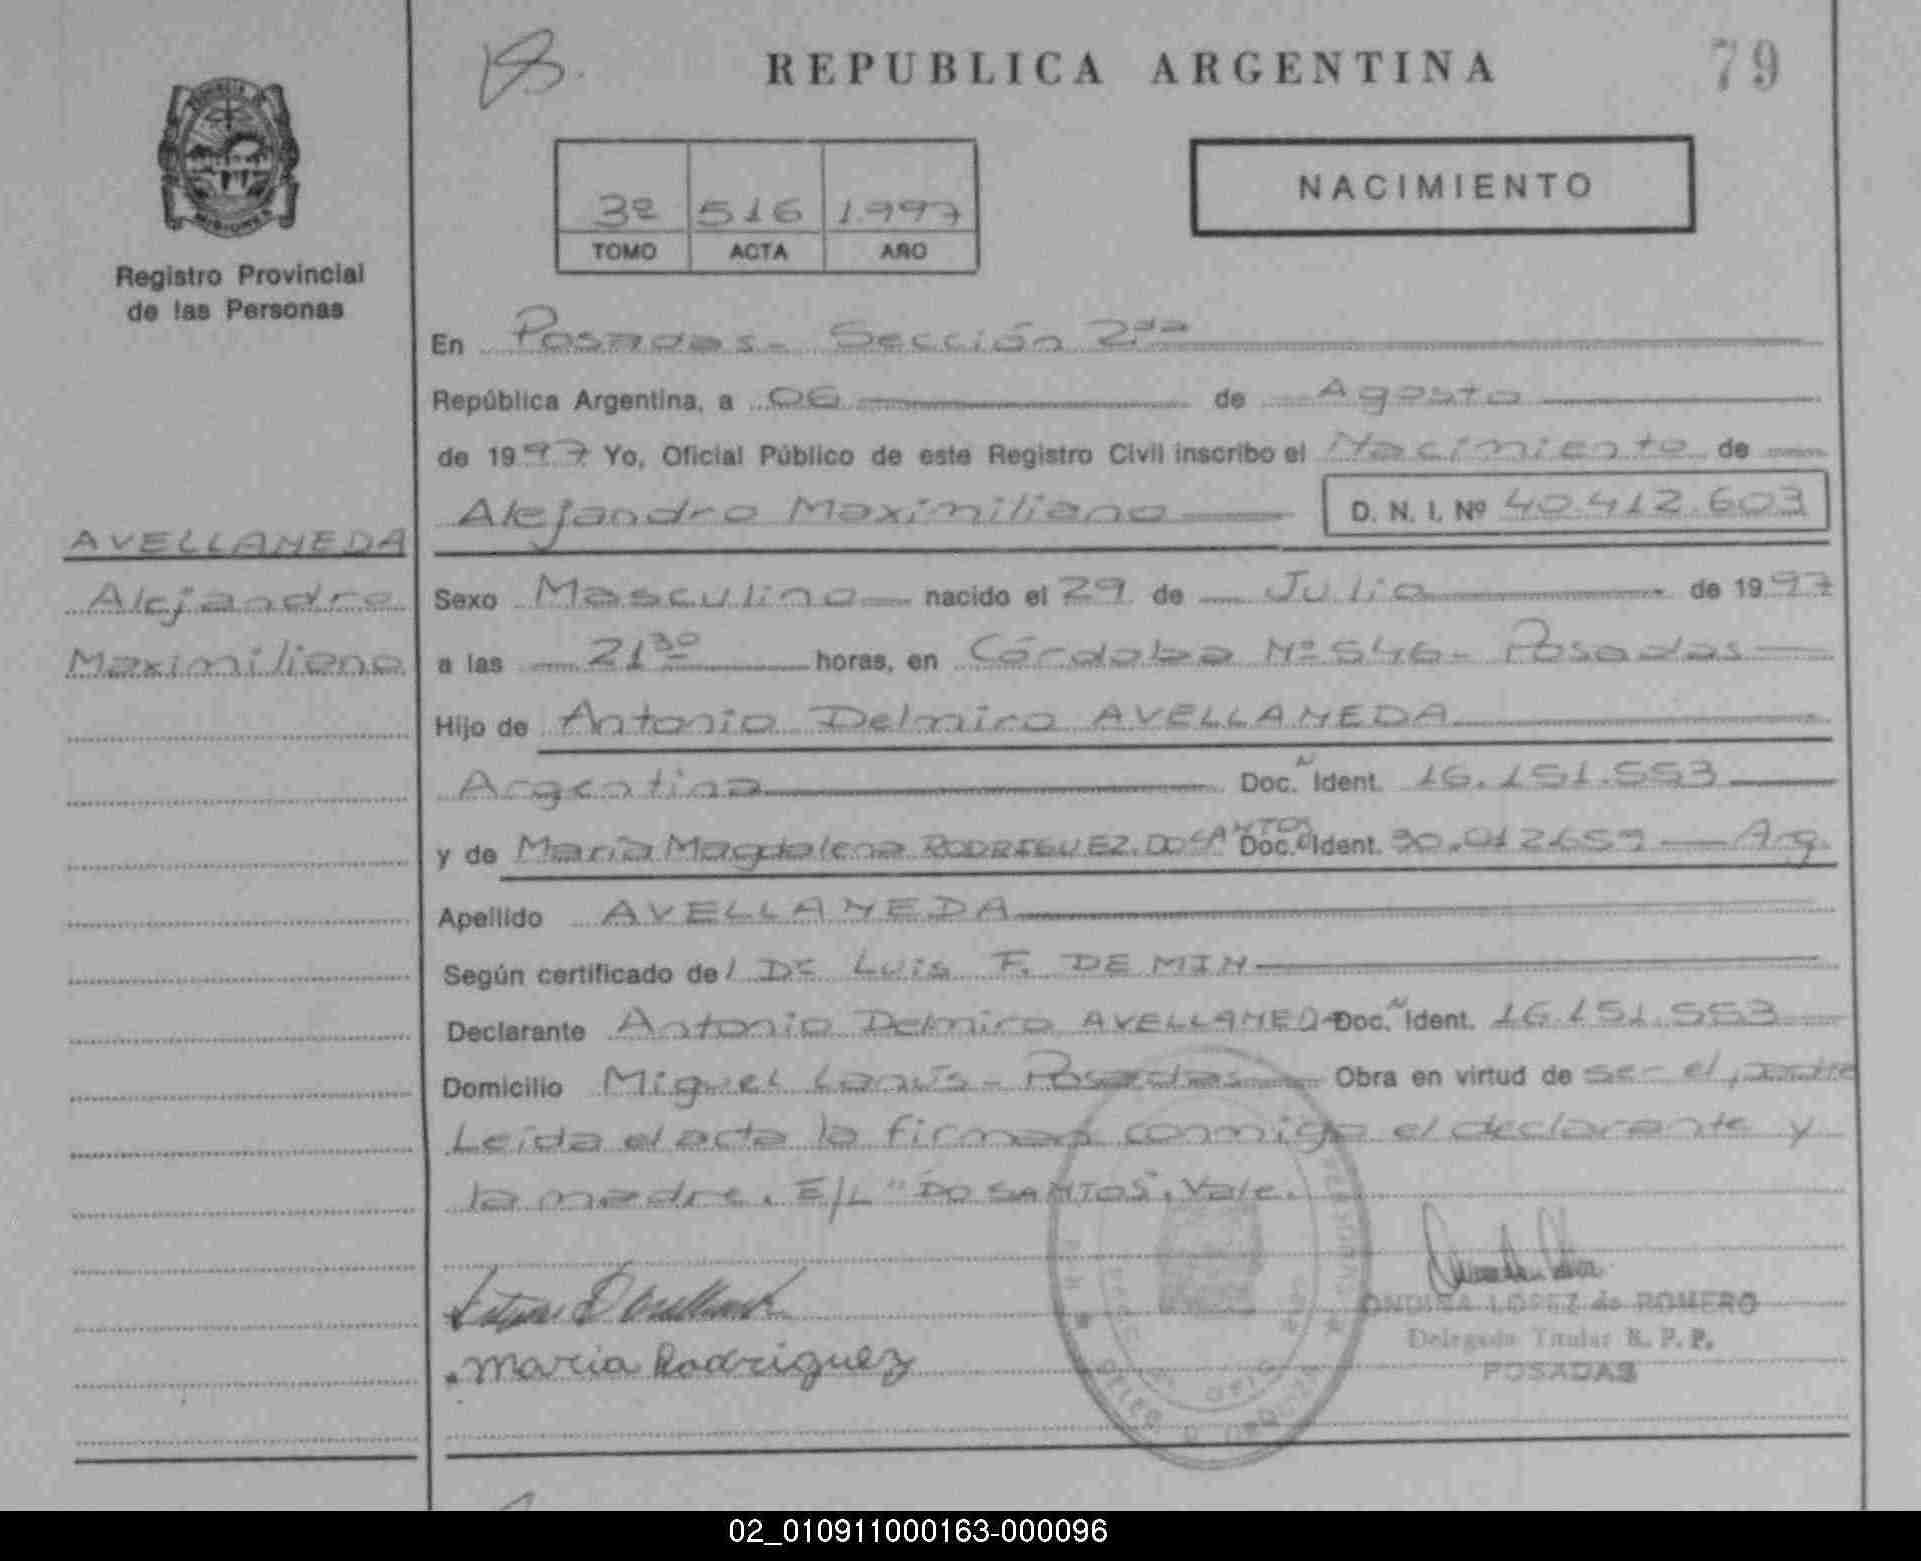 REPUBLICA ARGENTINA
79
NACIMIENTO
3º 516 1.997
TOMO ACTA AÑO
Registro Provincial
de las Personas
En Posadas - Sección 2da
República Argentina, a 06 de Agosto
de 1997 Yo, Oficial Público de este Registro Civil inscribo el Nacimiento de
Alejandro Maximiliano D. N. I. Nº 40.412.603
AVELLANEDA
Alejandro
Maximiliano
Sexo Masculino nacido el 29 de Julio de 1997
a las 21 30 horas, en Córdoba Nº 546 - Posadas
Hijo de Antonio Delmiro AVELLANEDA
Argentina Doc. Ident. 16.151.553
y de María Magdalena RODRIGUEZ DO SANTOS Doc. Ident. 90.012659 Arg.
Apellido AVELLANEDA
Según certificado del Dr Luis F. DEMIN
Declarante Antonio Delmiro AVELLANEDA Doc. Ident. 16.151.553
Domicilio Miguel Lanús - Posadas Obra en virtud de ser el padre
Leída el acta la firman conmigo el declarante y
la madre. E/L "DO SANTOS", Vale.
María Rodriguez
ONDINA LOPEZ de ROMERO
Delegada Titular R. P. P.
POSADAS
02_010911000163-000096